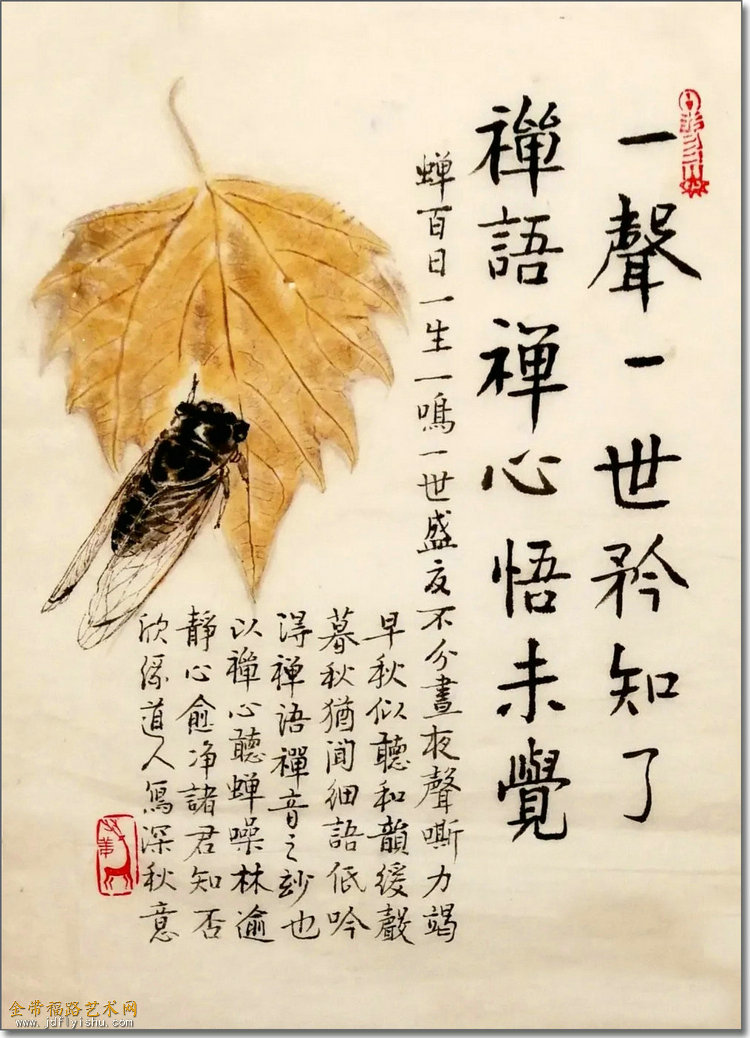 一聲一世矜知了
禪語禅心悟未覺
蝉百日一生一鳴一世盛夏不分晝夜聲嘶力竭
早秋似聽和韻緩聲
暮秋猶聞细語低吟
得禅语禪音之妙也
以禪心聽蝉噪林逾
靜心愈净諸君知否
欣缘道人寫深秋意
金带福路艺术网
www.jdflyishu.com